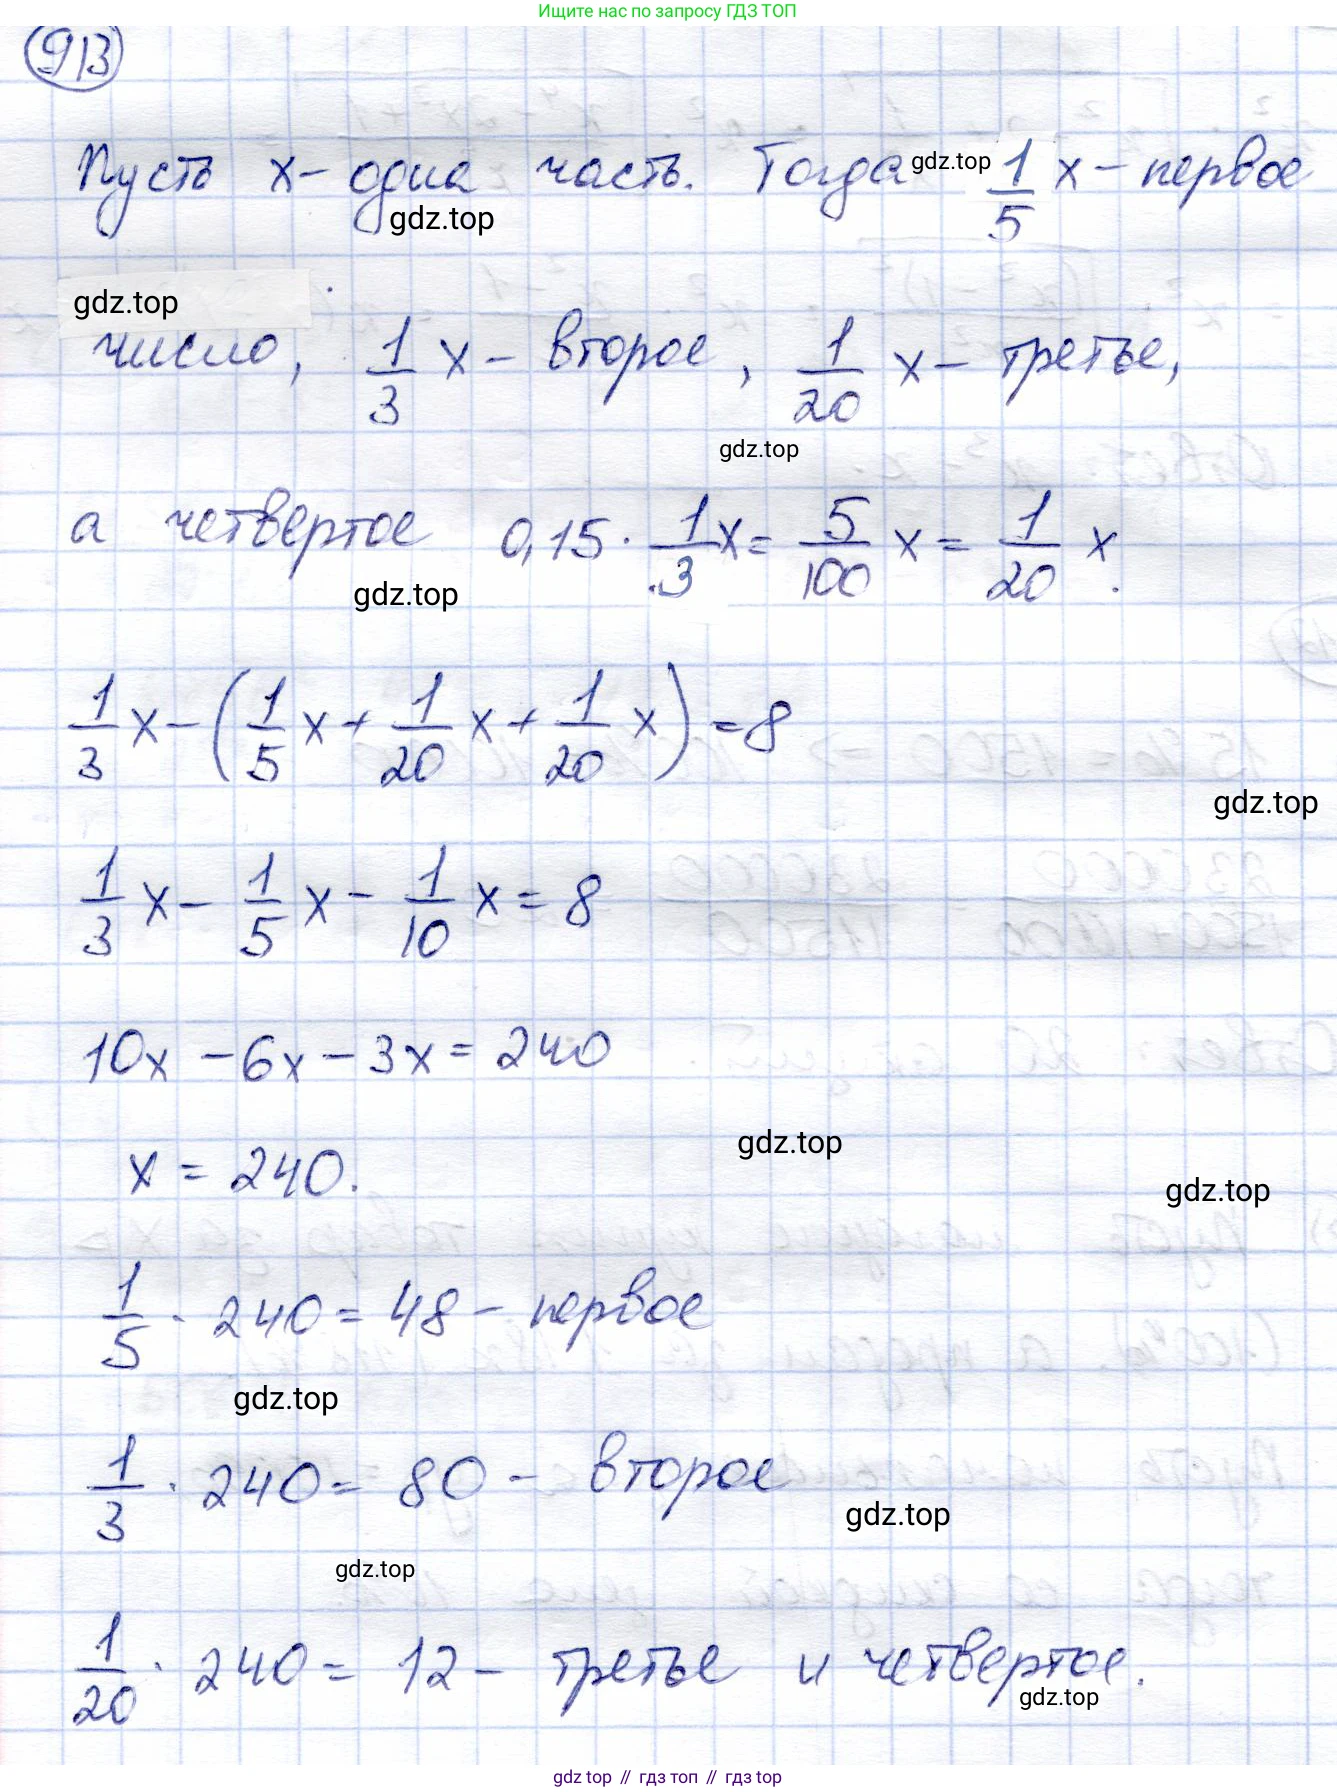 Ищите нас по запросу ГДЗ ТОП
913
Пусть x - одна часть. Тогда 1/5 x - первое
число, 1/3 x - второе, 1/20 x - третье,
а четвертое 0,15 · 1/3 x = 5/100 x = 1/20 x.
1/3 x - (1/5 x + 1/20 x + 1/20 x) = 8
1/3 x - 1/5 x - 1/10 x = 8
10x - 6x - 3x = 240
x = 240.
1/5 · 240 = 48 - первое
1/3 · 240 = 80 - второе
1/20 · 240 = 12 - третье и четвертое.
gdz.top
gdz.top
gdz.top
gdz.top
gdz.top
gdz.top
gdz.top
gdz.top
gdz.top
gdz.top
gdz.top
gdz.top
gdz top // гдз топ // гдз top